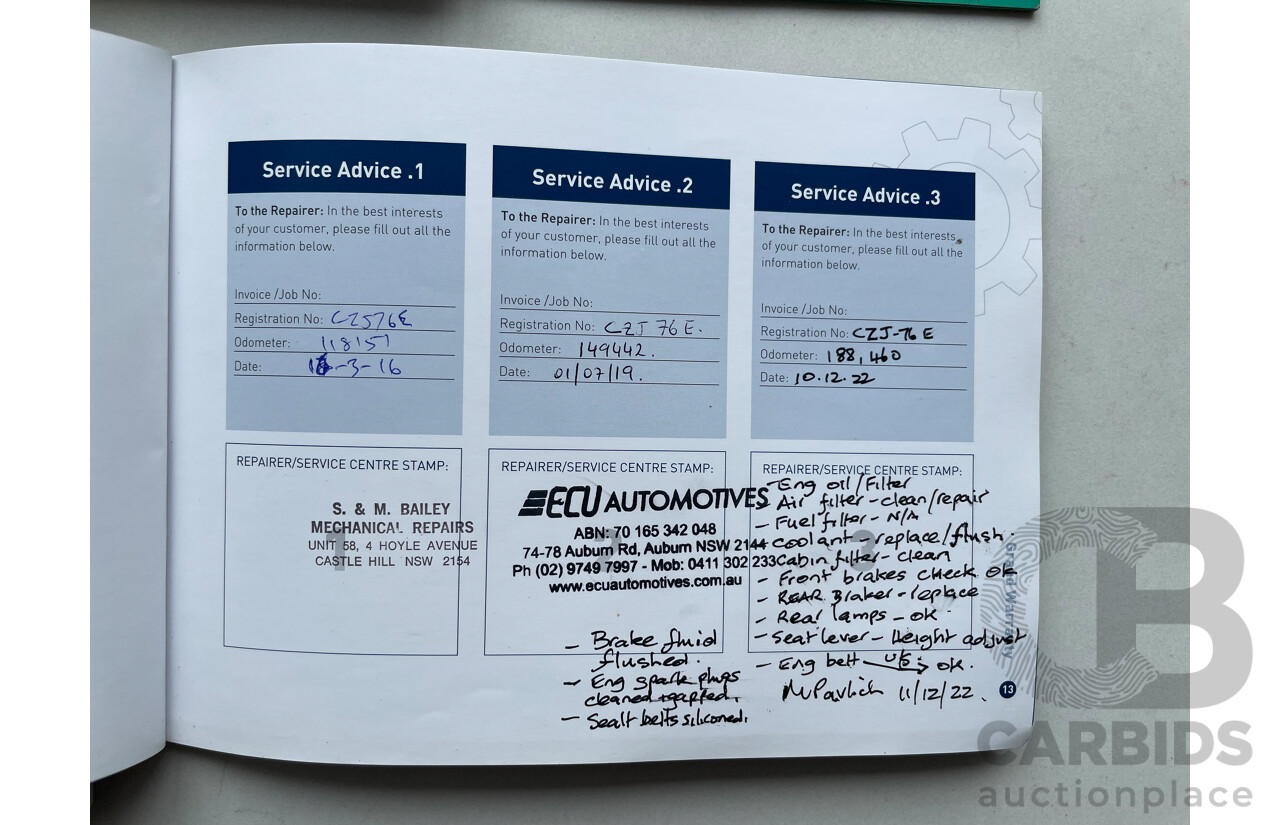 Service Advice .1
To the Repairer: In the best interests
of your customer, please fill out all the
information below.
Invoice /Job No:
Registration No: CZJ76E
Odometer: 118151
Date: 16-3-16
REPAIRER/SERVICE CENTRE STAMP:
1
S. & M. BAILEY
MECHANICAL REPAIRS
UNIT 58, 4 HOYLE AVENUE
CASTLE HILL NSW 2154
Service Advice .2
To the Repairer: In the best interests
of your customer, please fill out all the
information below.
Invoice /Job No:
Registration No: CZJ 76 E.
Odometer: 149442.
Date: 01/07/19.
REPAIRER/SERVICE CENTRE STAMP:
2
ECU AUTOMOTIVES
ABN: 70 165 342 048
74-78 Auburn Rd, Auburn NSW 2144
Ph (02) 9749 7997 - Mob: 0411 302 233
www.ecuautomotives.com.au
- Brake fluid
flushed.
- Eng spark plugs
cleaned + gapped.
- Sealt belts siliconed.
Service Advice .3
To the Repairer: In the best interests
of your customer, please fill out all the
information below.
Invoice /Job No:
Registration No: CZJ-76 E
Odometer: 188,460
Date: 10.12.22
REPAIRER/SERVICE CENTRE STAMP:
3
- Eng oil/Filter
- Air filter - clean/repair
- Fuel filter - N/A
- Coolant - replace/flush.
- Cabin filter - clean
- Front brakes check ok
- REAR Braker - replace
- Rear lamps - ok.
- Seat lever - Height adjust
- Eng belt U/S: ok.
11/12/22.
Warranty
13
CARBIDS
auctionplace